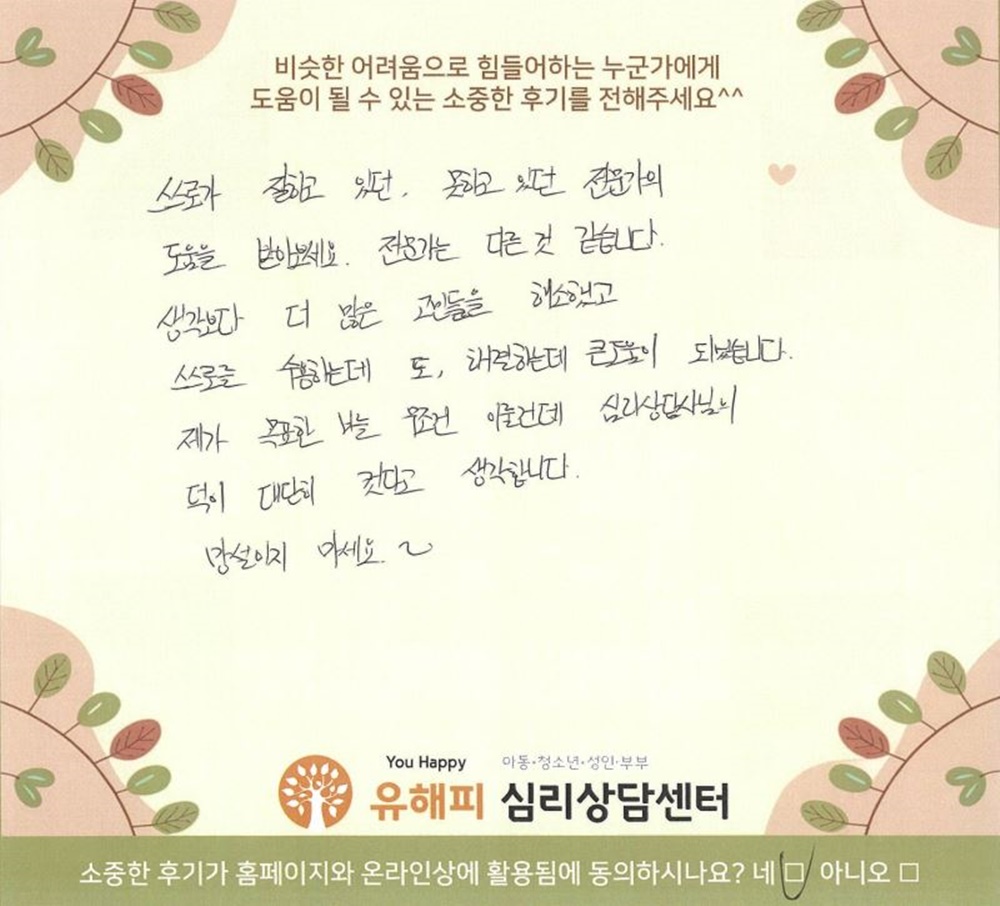 비슷한 어려움으로 힘들어하는 누군가에게
도움이 될 수 있는 소중한 후기를 전해주세요^^
스스로가 잘하고 있던, 못하고 있던 전문가의
도움을 받아보세요. 전문가는 다른 것 같습니다.
생각보다 더 많은 고민들을 해소했고
스스로를 수용하는데 또, 해결하는데 큰도움이 되었습니다.
제가 목표한 바는 무조건 이룰건데 심리상담사님의
덕이 대단히 컷다고 생각합니다.
망설이지 마세요.~
You Happy 아동·청소년·성인·부부
유해피 심리상담센터
소중한 후기가 홈페이지와 온라인상에 활용됨에 동의하시나요? 네 □ 아니오 □